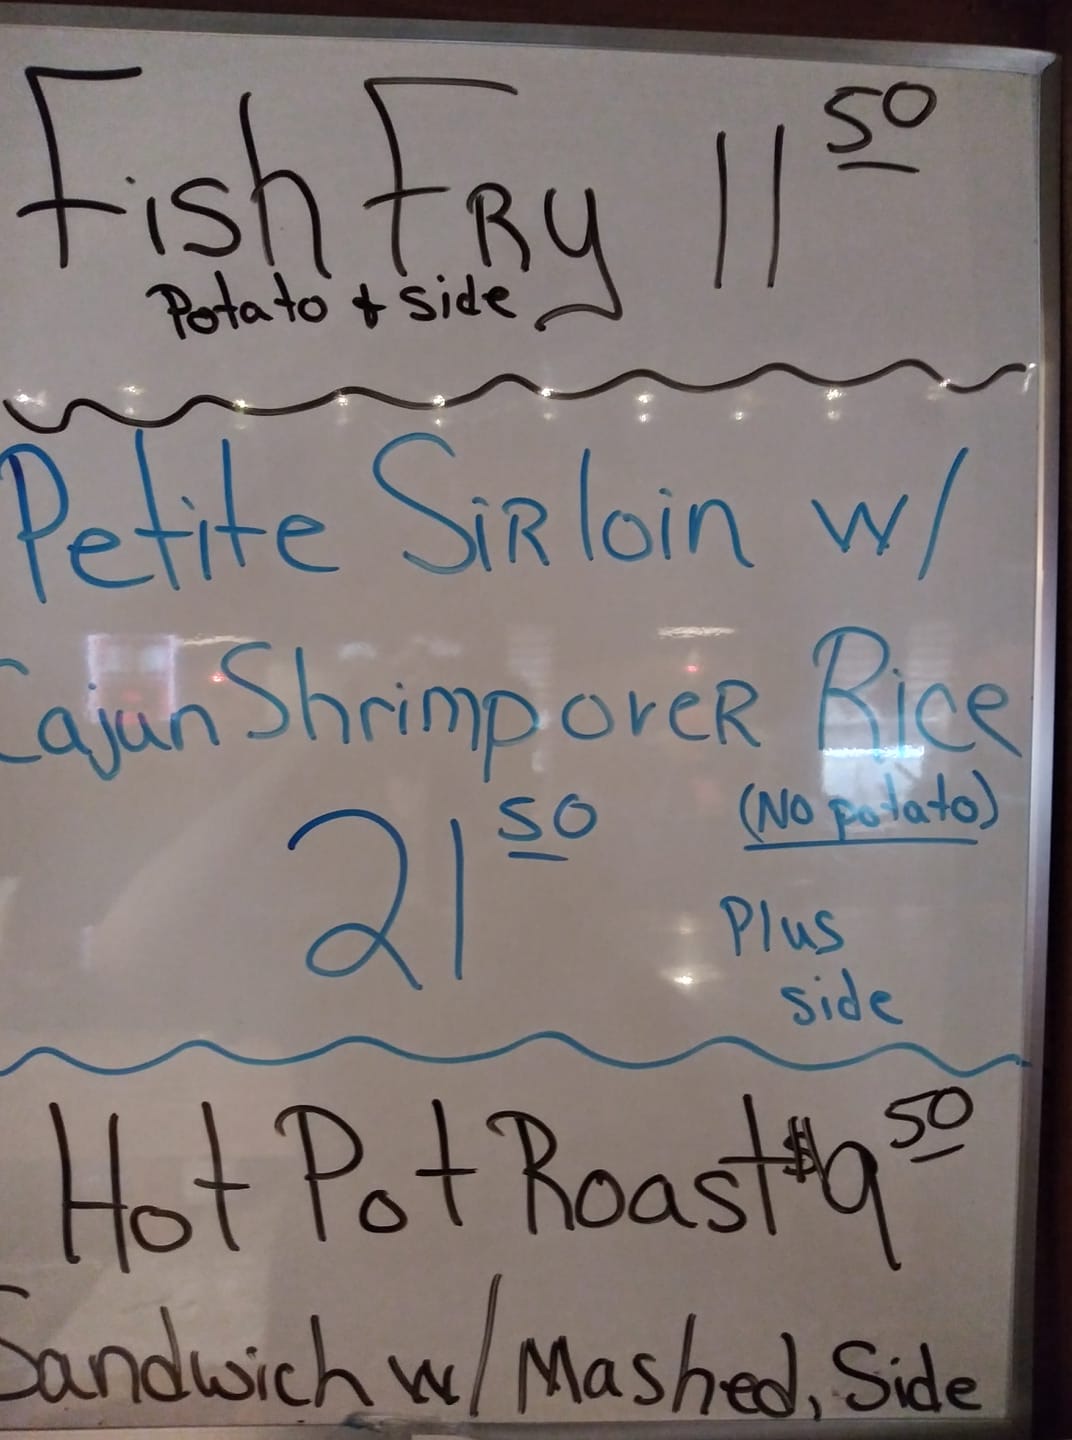 Fish Fry 11 50
Potato + side
Petite Sirloin w/
Cajun Shrimp over Rice
21 50 (No potato)
Plus
side
Hot Pot Roast $9 50
Sandwich w/ Mashed, Side